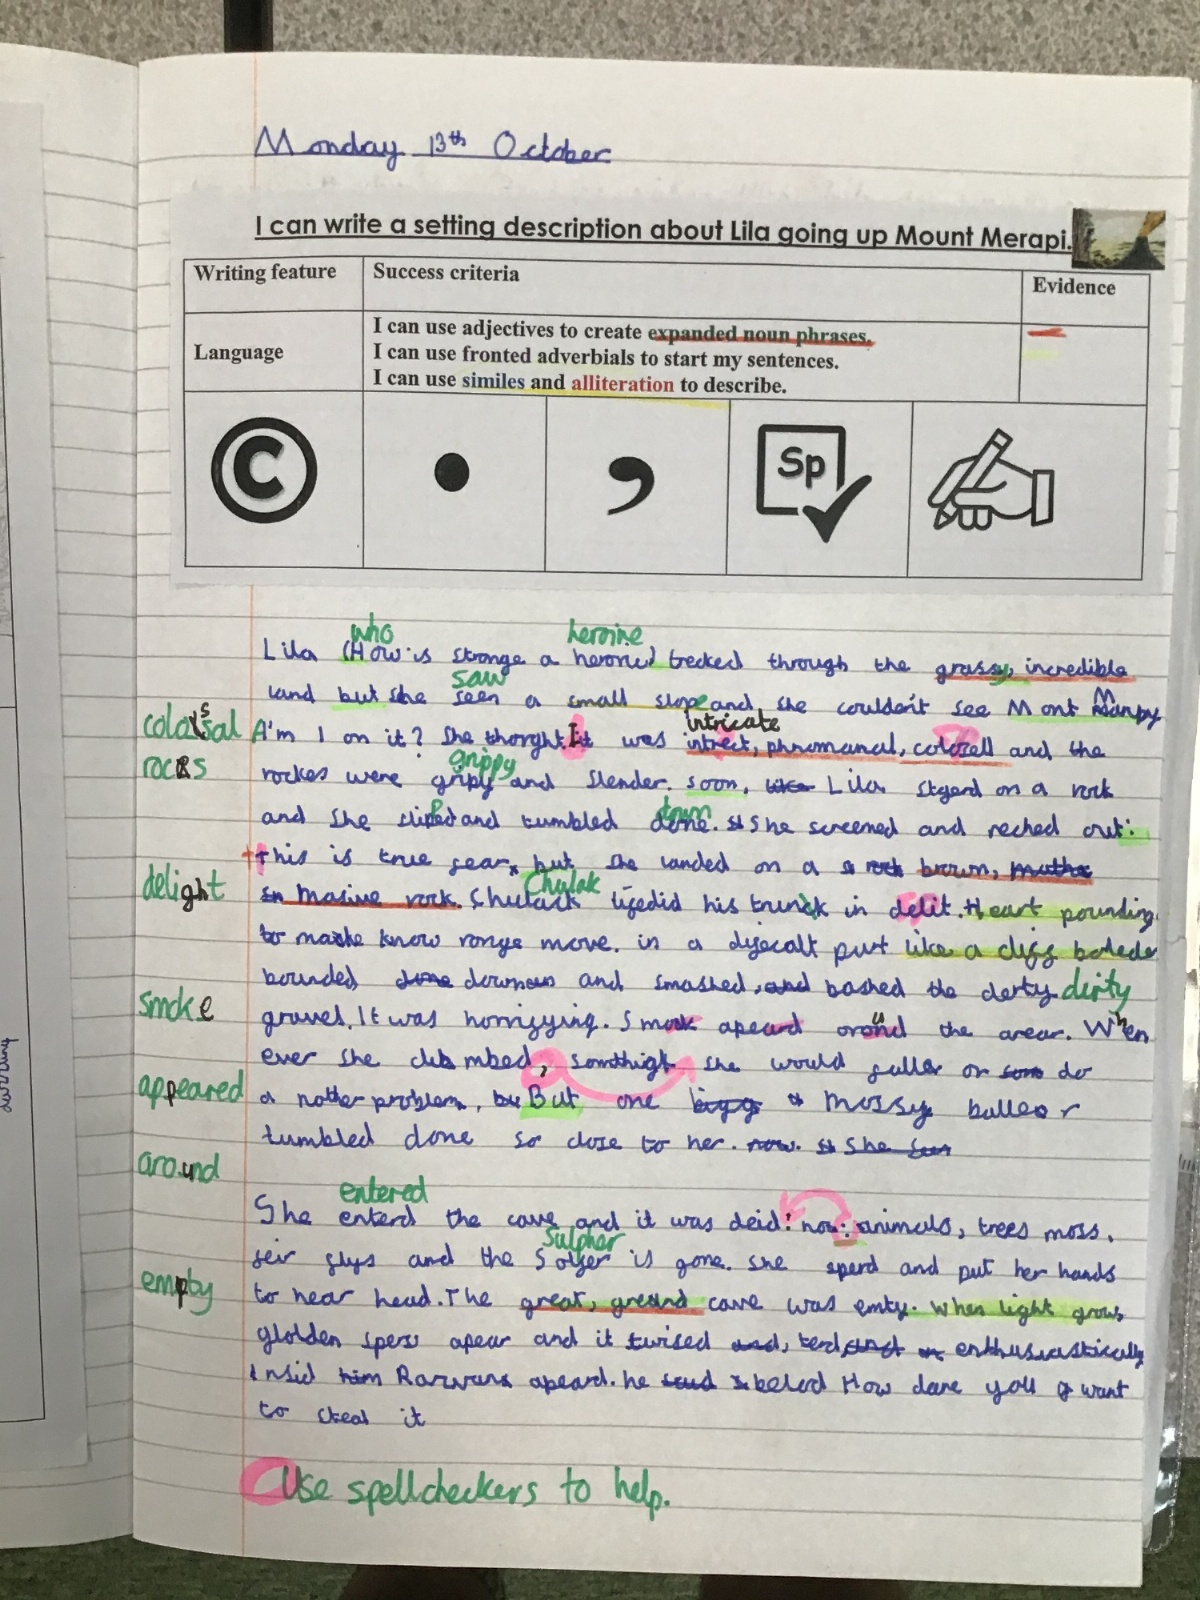 Monday 13th October
I can write a setting description about Lila going up Mount Merapi.
Writing feature
Success criteria
Evidence
Language
I can use adjectives to create expanded noun phrases.
I can use fronted adverbials to start my sentences.
I can use similes and alliteration to describe.
©
Sp
who heroine
Lila (How is stronge a heroine) trecked through the grassy, incredible
saw
land but she seen a small slope and she couldn't see Mont
colossal
intricate
A'm I on it? She thorght. It was intrect, phnomanal, colozell and the
rocks
grippy
rockes were gripy and slender. soon, Lila styerd on a rock
down
and she sliped and tumbled done. She screened and reched out:
This is true fear, but she landed on a brown,
delight
Chylak
masive rock. Chulack lifedid his trunck in delit. Heart pounding
to know move. in a difecalt part like a cliff
bounded down and smashed, bashed the derty dirty
smoke
gravel. It was horrifying. Smok apeard around the arear. When
ever she climbed, somthigt she would faller or do
appeared
a nother problem, But one mossy balleor
tumbled done so close to her. now. She seen
around
entered
She enterd the cave and it was deid: now: animals, trees moss.
Sulpher
flys and the Solfer is gone. she sperd and put her hands
empty
to hear head. The great, greand cave was emty. When light grows
glolden apear and it twised and, enthusiastically
Insid him apeard. he beled How dare you want
to steal it
Use spellcheckers to help.